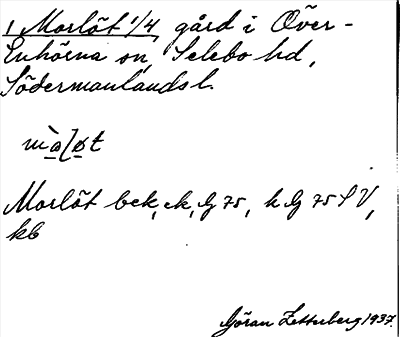 1 Morlöt 1/4 gård i Över-
Enhörna sn, Selebo hd,
Södermanlands l.
Morlöt bek, ek, G 75, h G 75 S V,
kb
Göran Zetterberg 1937.